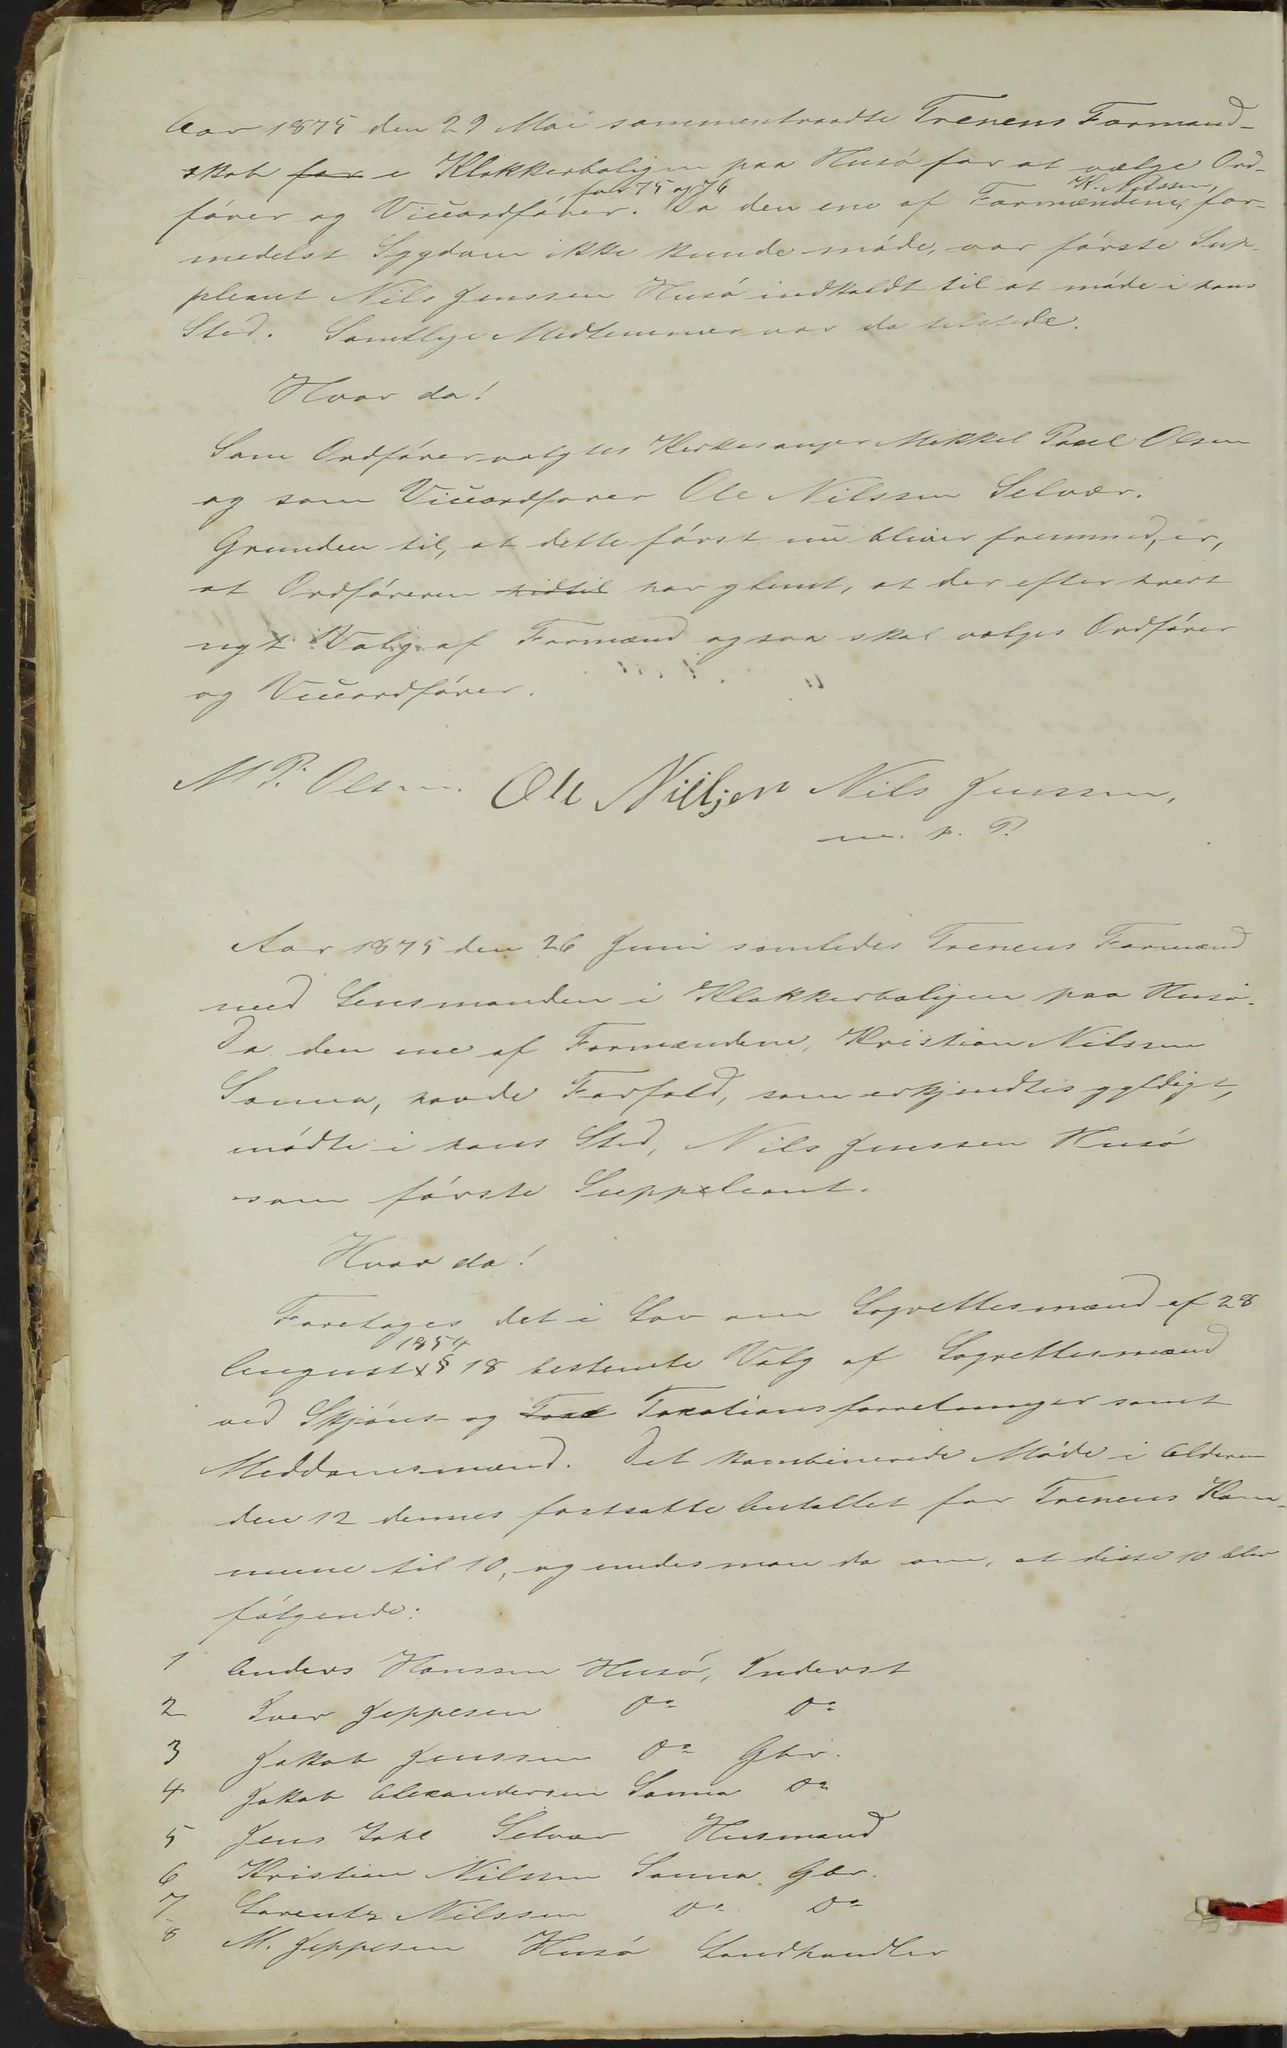 Aar 1875 den 29 Mai sammentraadte Trenens Formand-
skab for i Klokkerboligen paa Husø for at vælge Ord-
fører og Viceordfører for 75 og 76. Da den ene af Formændene, K. Nilssen, for-
medelst Sygdom ikke kunde møde, var første Sup-
pleant Nils Jenssen Husø indkaldt til at møde i hans
Sted. Samtlige Medlemmer var da tilstede.
Hvor da!
Som Ordfører valgtes Kirkesanger Mikkel Paul Olsen
og som Viceordfører Ole Nilssen Selvær.
Grunden til, at dette først nu bliver fremmed, er,
at Ordføreren hidtil har glemt, at der efter hvert
nyt Valg af Formænd ogsaa skal vælges Ordfører
og Viceordfører.
M P. Olsen. Ole Nilsjen Nils Jenssen,
m. p. P.
Aar 1875 den 26 Juni samledes Trenens Formænd
med Lensmanden i Klokkerboligen paa Husø.
Da den ene af Formændene, Kristian Nilssen
Sanna, havde Forfald, som erkjendtes gyldigt,
mødte i hans Sted, Nils Jenssen Husø
som første Suppleant.
Hvor da!
Foretoges det i Lov om Lagrettesmænd af 28
August 1854 § 18 bestemte Valg af Lagrettesmænd
ved Skjøns- og Taxt Taxationsforretninger samt
Meddomsmænd. Det kombinerede Møde i Alderen
den 12 dennes fastsatte Antallet for Trenens Kom-
mune til 10, og enedes man da om, at disse 10 blev
følgende:
1 Anders Hanssen Husø, Inderst
2 Iver Jeppesen Do Do
3 Jakob Jenssen Do Gbr.
4 Jakob Alexandersen Sanna Do
5 Jens Zahl Selvær Husmand
6 Kristian Nilssen Sanna Gbr.
7 Lorentz Nilssen Do Do
8 M. Jeppesen Husø Landhandler